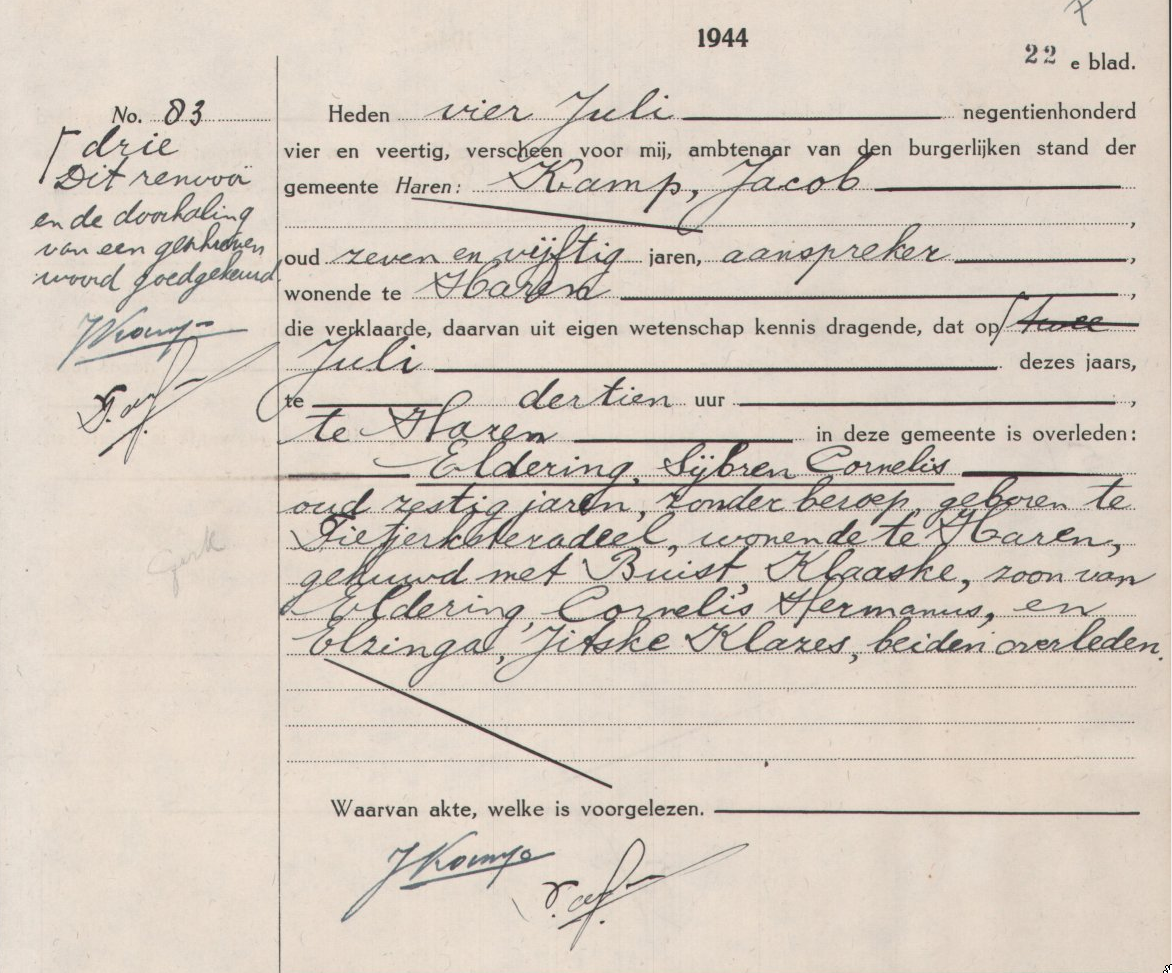 1944
22 e blad.
No. 83
⌈ drie
Dit renvooi
en de doorhaling
van een geschreven
woord goedgekeurd.
JKamp
Heden vier Juli negentienhonderd
vier en veertig, verscheen voor mij, ambtenaar van den burgerlijken stand der
gemeente Haren: Kamp, Jacob
,
oud zeven en vijftig jaren, aanspreker ,
wonende te Haren ,
die verklaarde, daarvan uit eigen wetenschap kennis dragende, dat op ⌈ twee
Juli dezes jaars,
te dertien uur ,
te Haren in deze gemeente is overleden:
Eldering, Sijbren Cornelis
oud zestig jaren, zonder beroep, geboren te
Tietjerksteradeel, wonende te Haren,
gehuwd met Buist, Klaaske, zoon van
Eldering, Cornelis Hermanus, en
Elzinga, Jitske Klazes, beiden overleden.
Waarvan akte, welke is voorgelezen.
JKamp